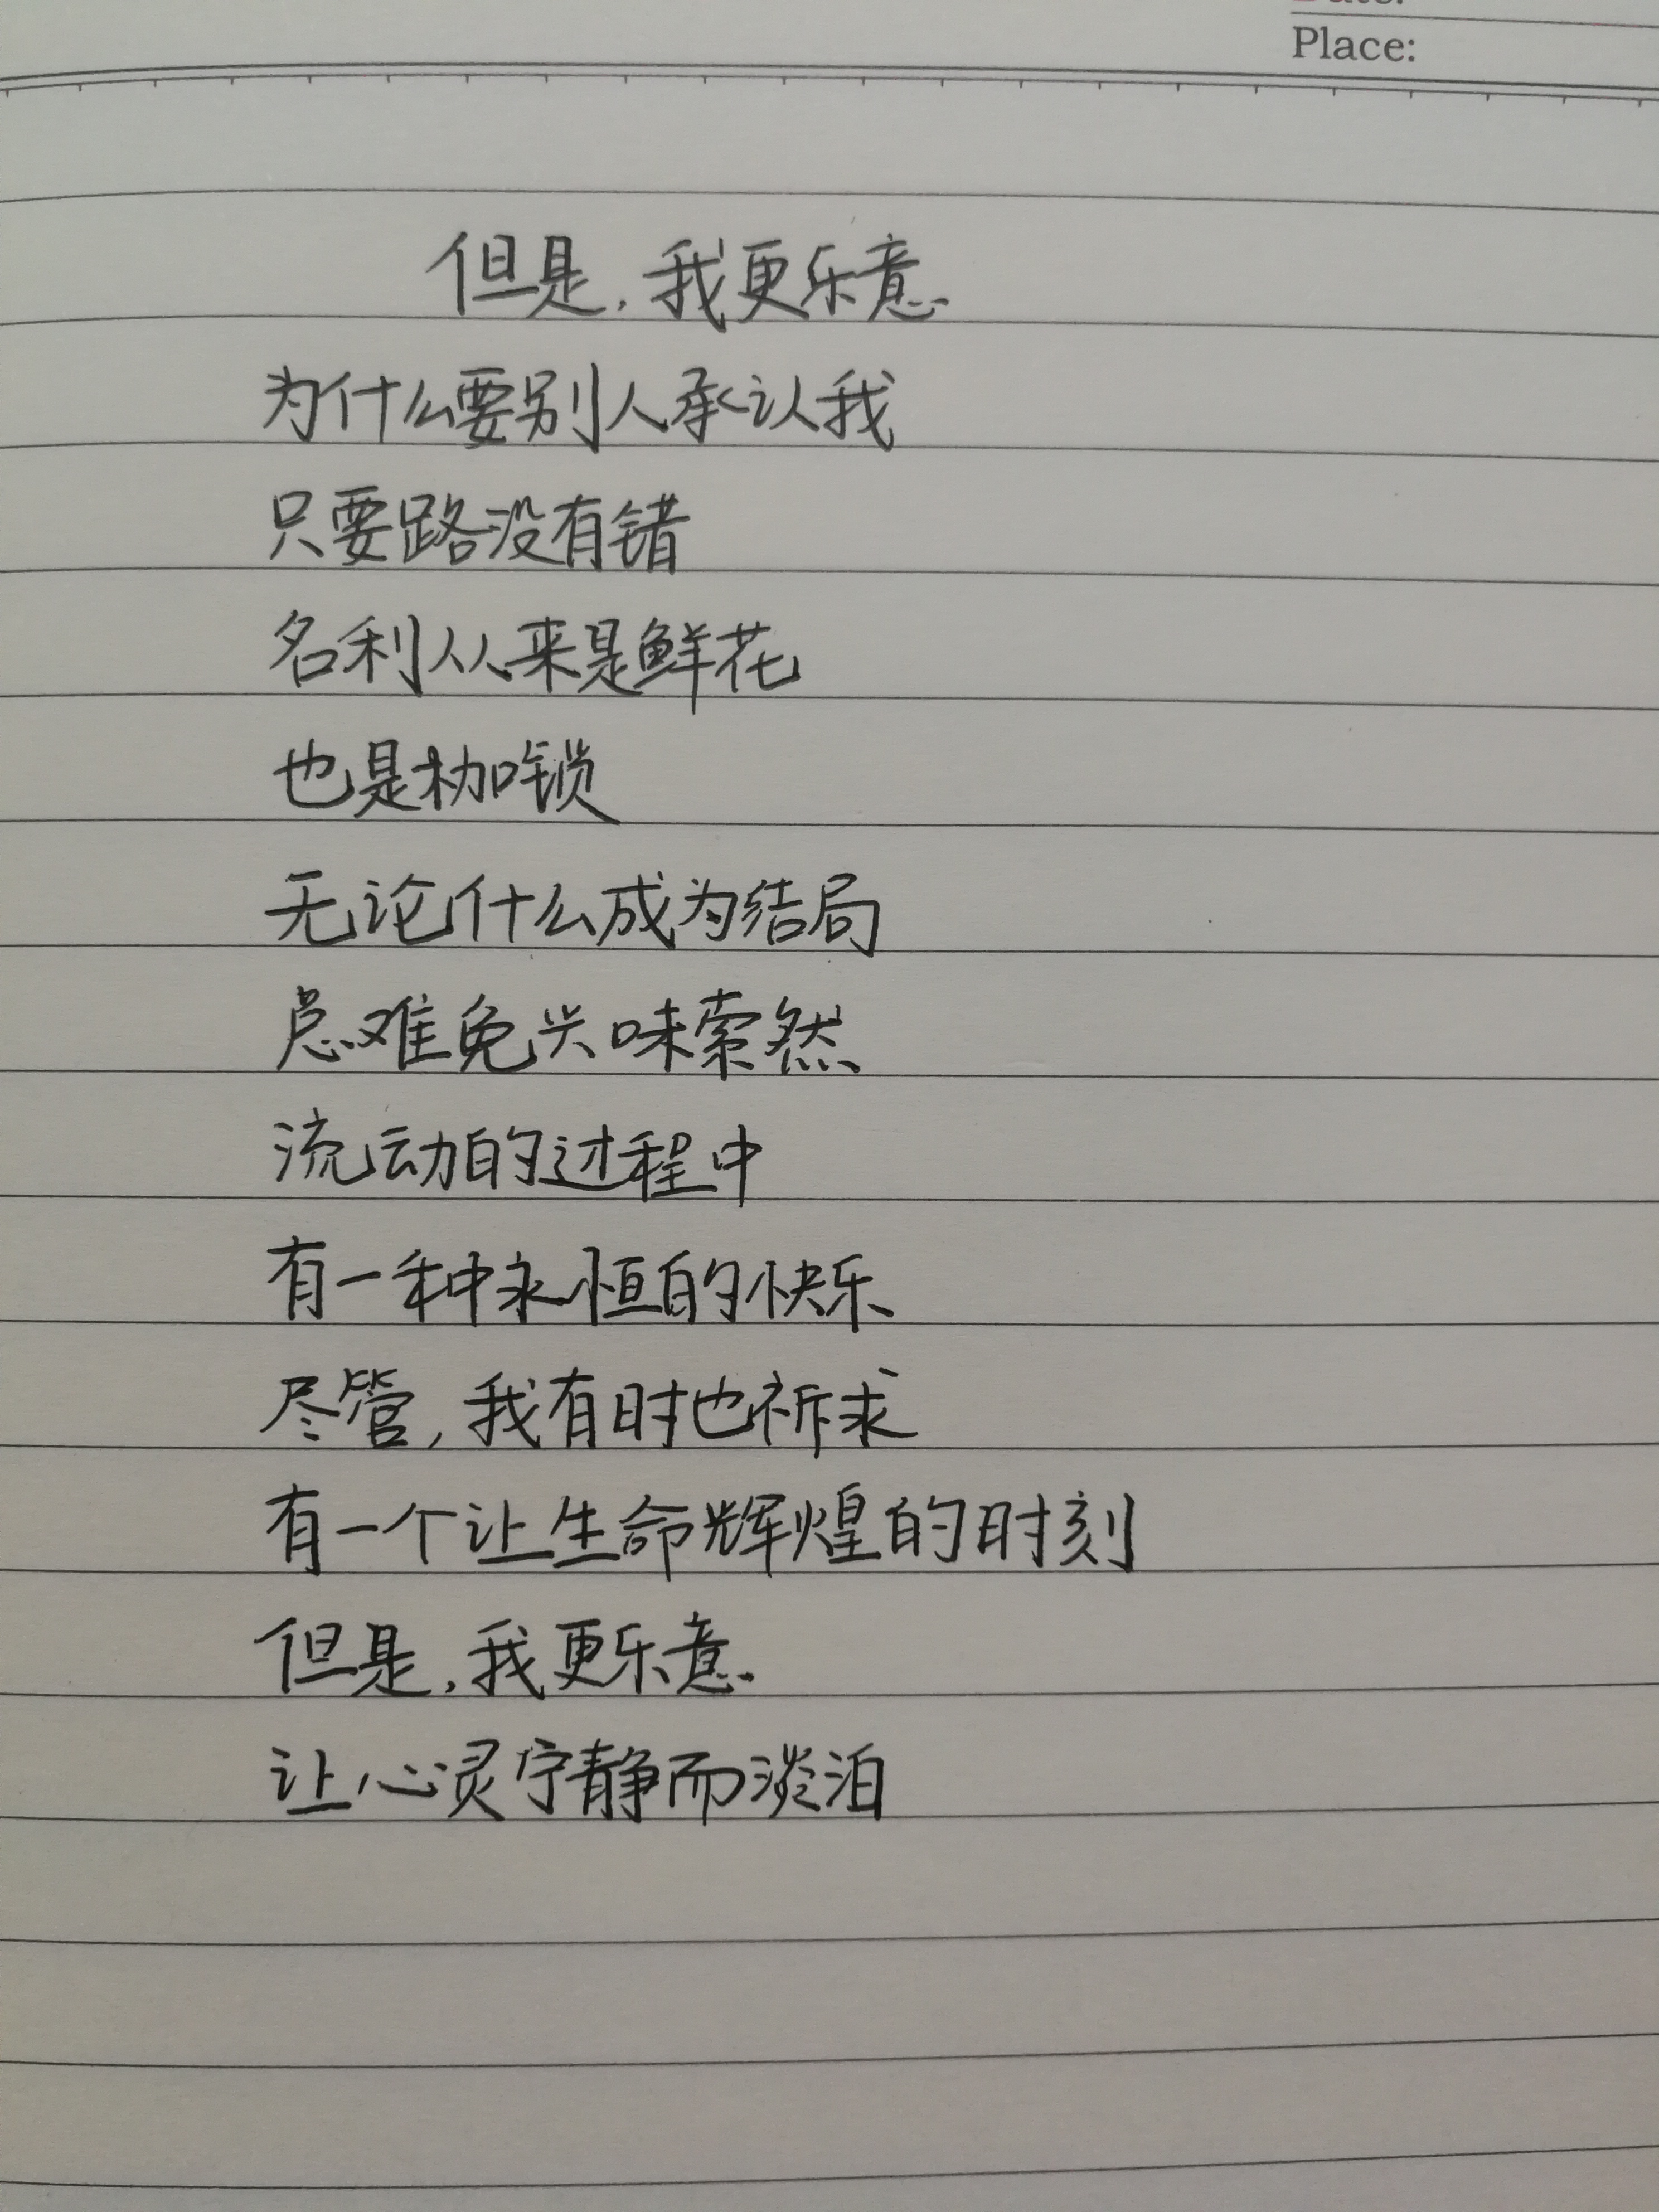 Place:
但是，我更乐意
为什么要别人承认我
只要路没有错
名利从来是鲜花
也是枷锁
无论什么成为结局
总难免兴味索然
流动的过程中
有一种永恒的快乐
尽管，我有时也祈求
有一个让生命辉煌的时刻
但是，我更乐意
让心灵宁静而淡泊